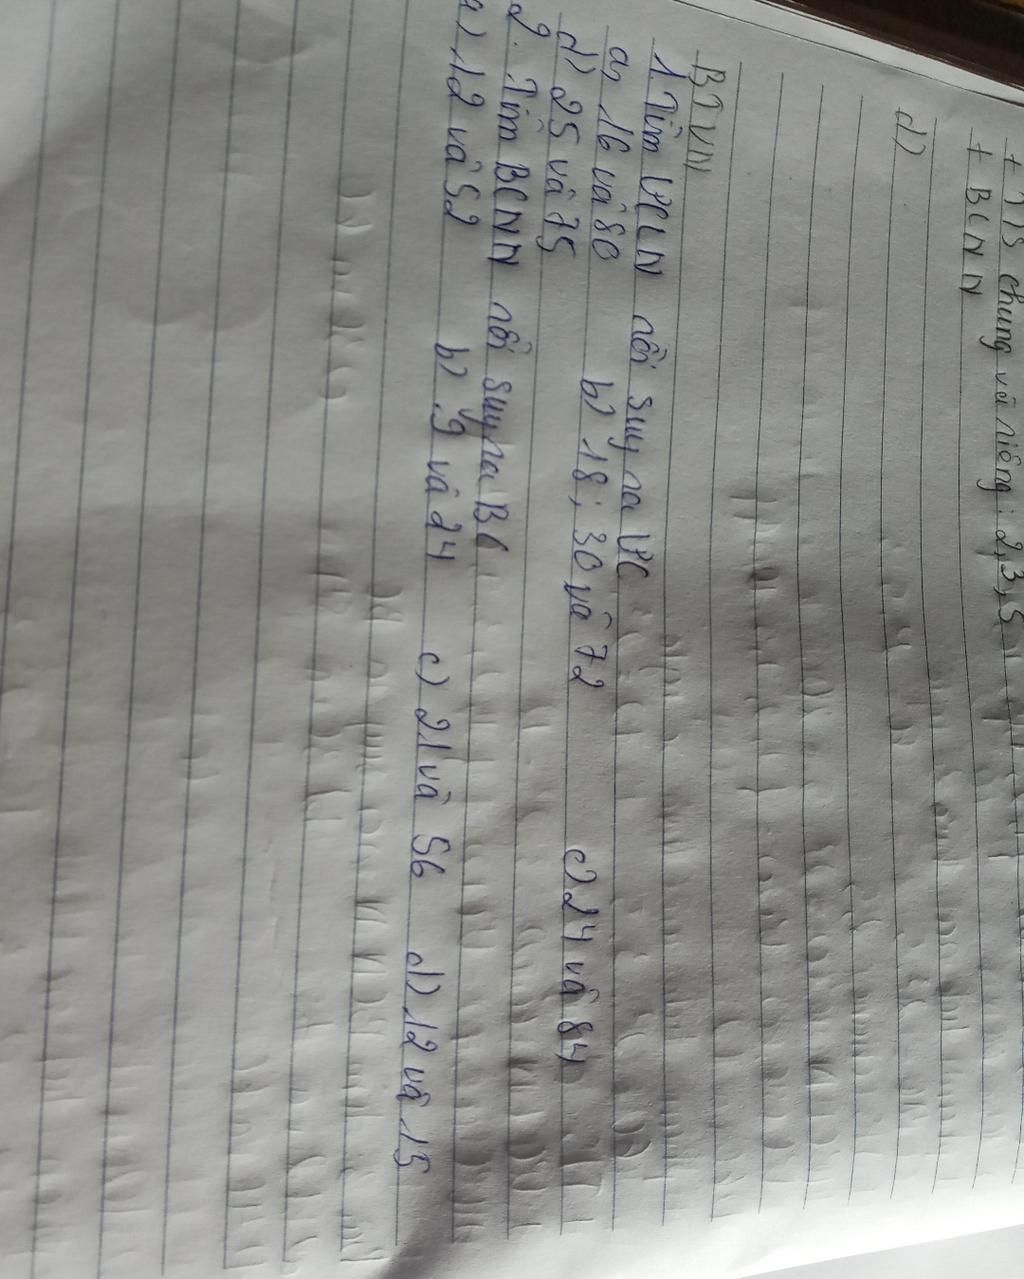 + TTS chung và riêng: 2,3,5
+ BCNN
d)
BTVN
1. Tìm ƯCLN rồi suy ra ƯC
a, 16 và 80 b) 18; 30 và 72 c) 24 và 84
d) 25 và 75
2. Tìm BCNN rồi suy ra BC
a) 12 và 52 b) 9 và 24 c) 21 và 56 d) 12 và 15